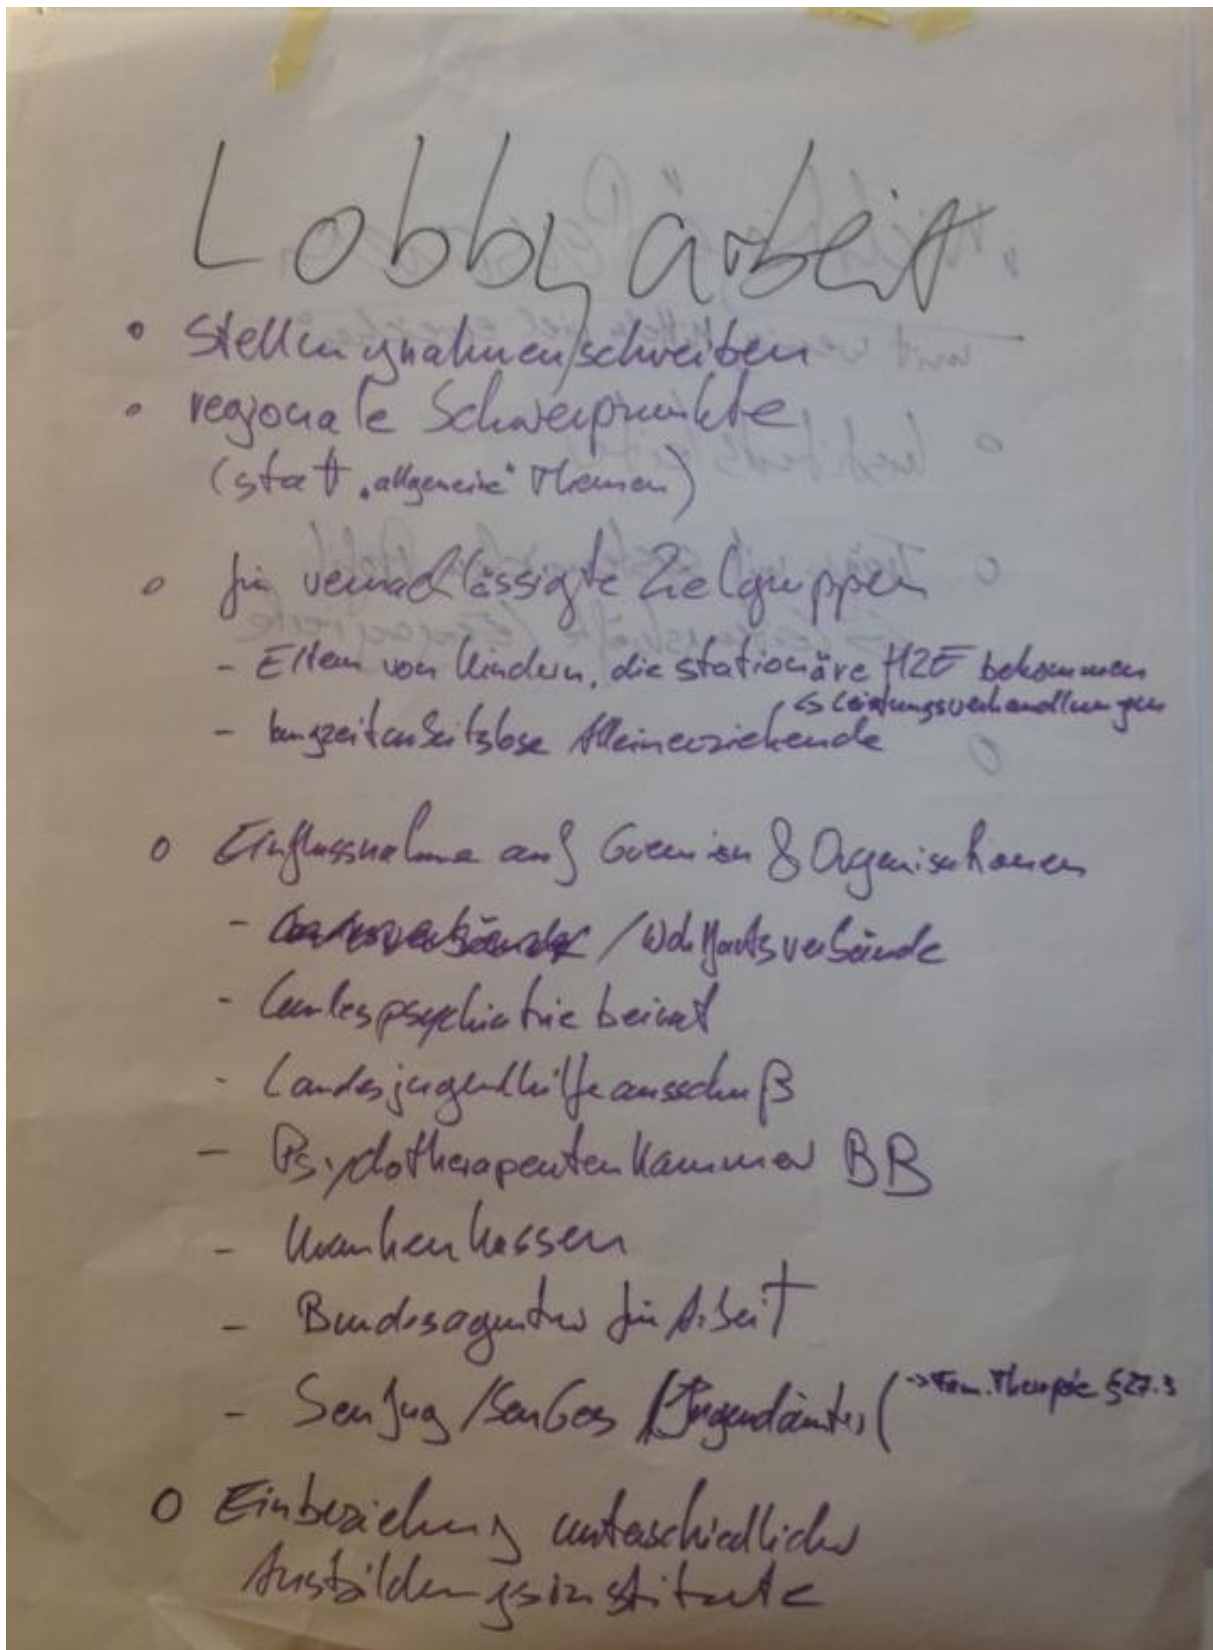 Lobbyarbeit
• Stellungnahmen/schreiben
• regionale Schwerpunkte
(statt „allgemeine“ Themen)
• für vernachlässigte Zielgruppen
- Eltern von Kindern, die stationäre HZE bekommen
↳ Leistungsverhandlungen
- langzeitarbeitslose Alleinerziehende
o Einflussnahme auf Gremien & Organisationen
- / Wohlfahrtsverbände
- Landespsychiatriebeirat
- Landesjugendhilfeausschuß
- Psychotherapeutenkammer BB
- Krankenkassen
- Bundesagentur für Arbeit
- SenJug / SenGes / Jugendämter ( -> Fam. Therapie § 27.3
o Einbeziehung unterschiedlicher
Ausbildungsinstitute